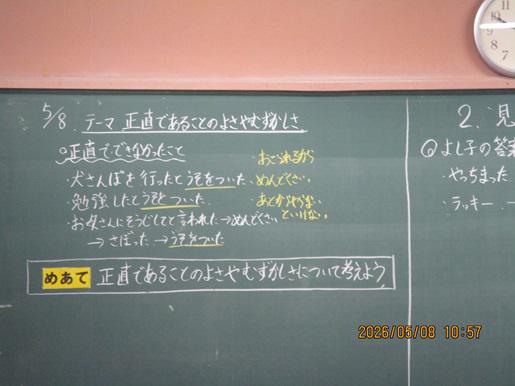 5/8 テーマ 正直であることのよさやむずかしさ
○正直でできなかったこと
・犬さんぽを行ったとうそをついた。
・勉強したとうそをついた。
・お母さんにそうじしてと言われた→めんどくさい
→さぼった→うそをついた
・おこられるから
・めんどくさい。
・あとがめんどい。
めあて 正直であることのよさやむずかしさについて考えよう。
2. 見
◎よし子の答案
・やっちまった
・ラッキー。
11
10
9
8
7
2026/05/08 10:57